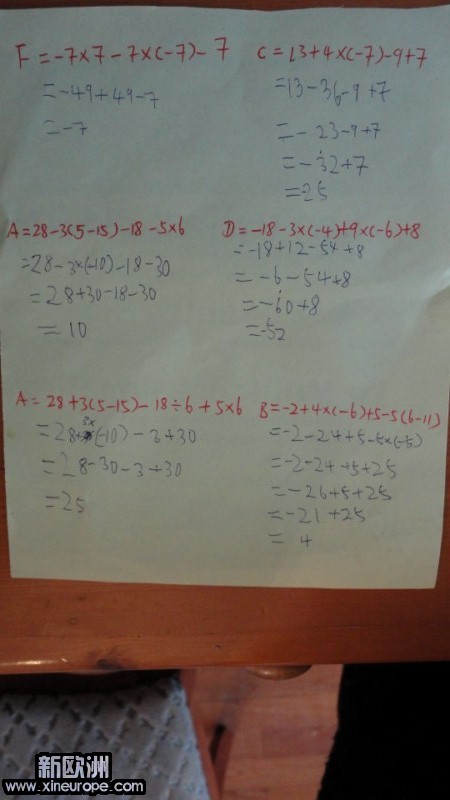 F = -7×7 - 7×(-7) - 7
= -49 + 49 - 7
= -7
C = 13+4×(-7)-9+7
= 13 - 36 - 9 + 7
= - 23 - 9 + 7
= - 32 + 7
= 25
A = 28 - 3(5-15) - 18 - 5×6
= 28 - 3×(-10) - 18 - 30
= 28 + 30 - 18 - 30
= 10
D = -18 - 3×(-4) + 9×(-6) + 8
= -18 + 12 - 54 + 8
= -6 - 54 + 8
= -60 + 8
= -52
A = 28 + 3(5-15) - 18 ÷ 6 + 5×6
= 28 + 3×(-10) - 3 + 30
= 28 - 30 - 3 + 30
= 25
B = -2 + 4×(-6) + 5 - 5(6-11)
= -2 - 24 + 5 - 5×(-5)
= -2 - 24 + 5 + 25
= -26 + 5 + 25
= -21 + 25
= 4
新欧洲
www.xineurope.com